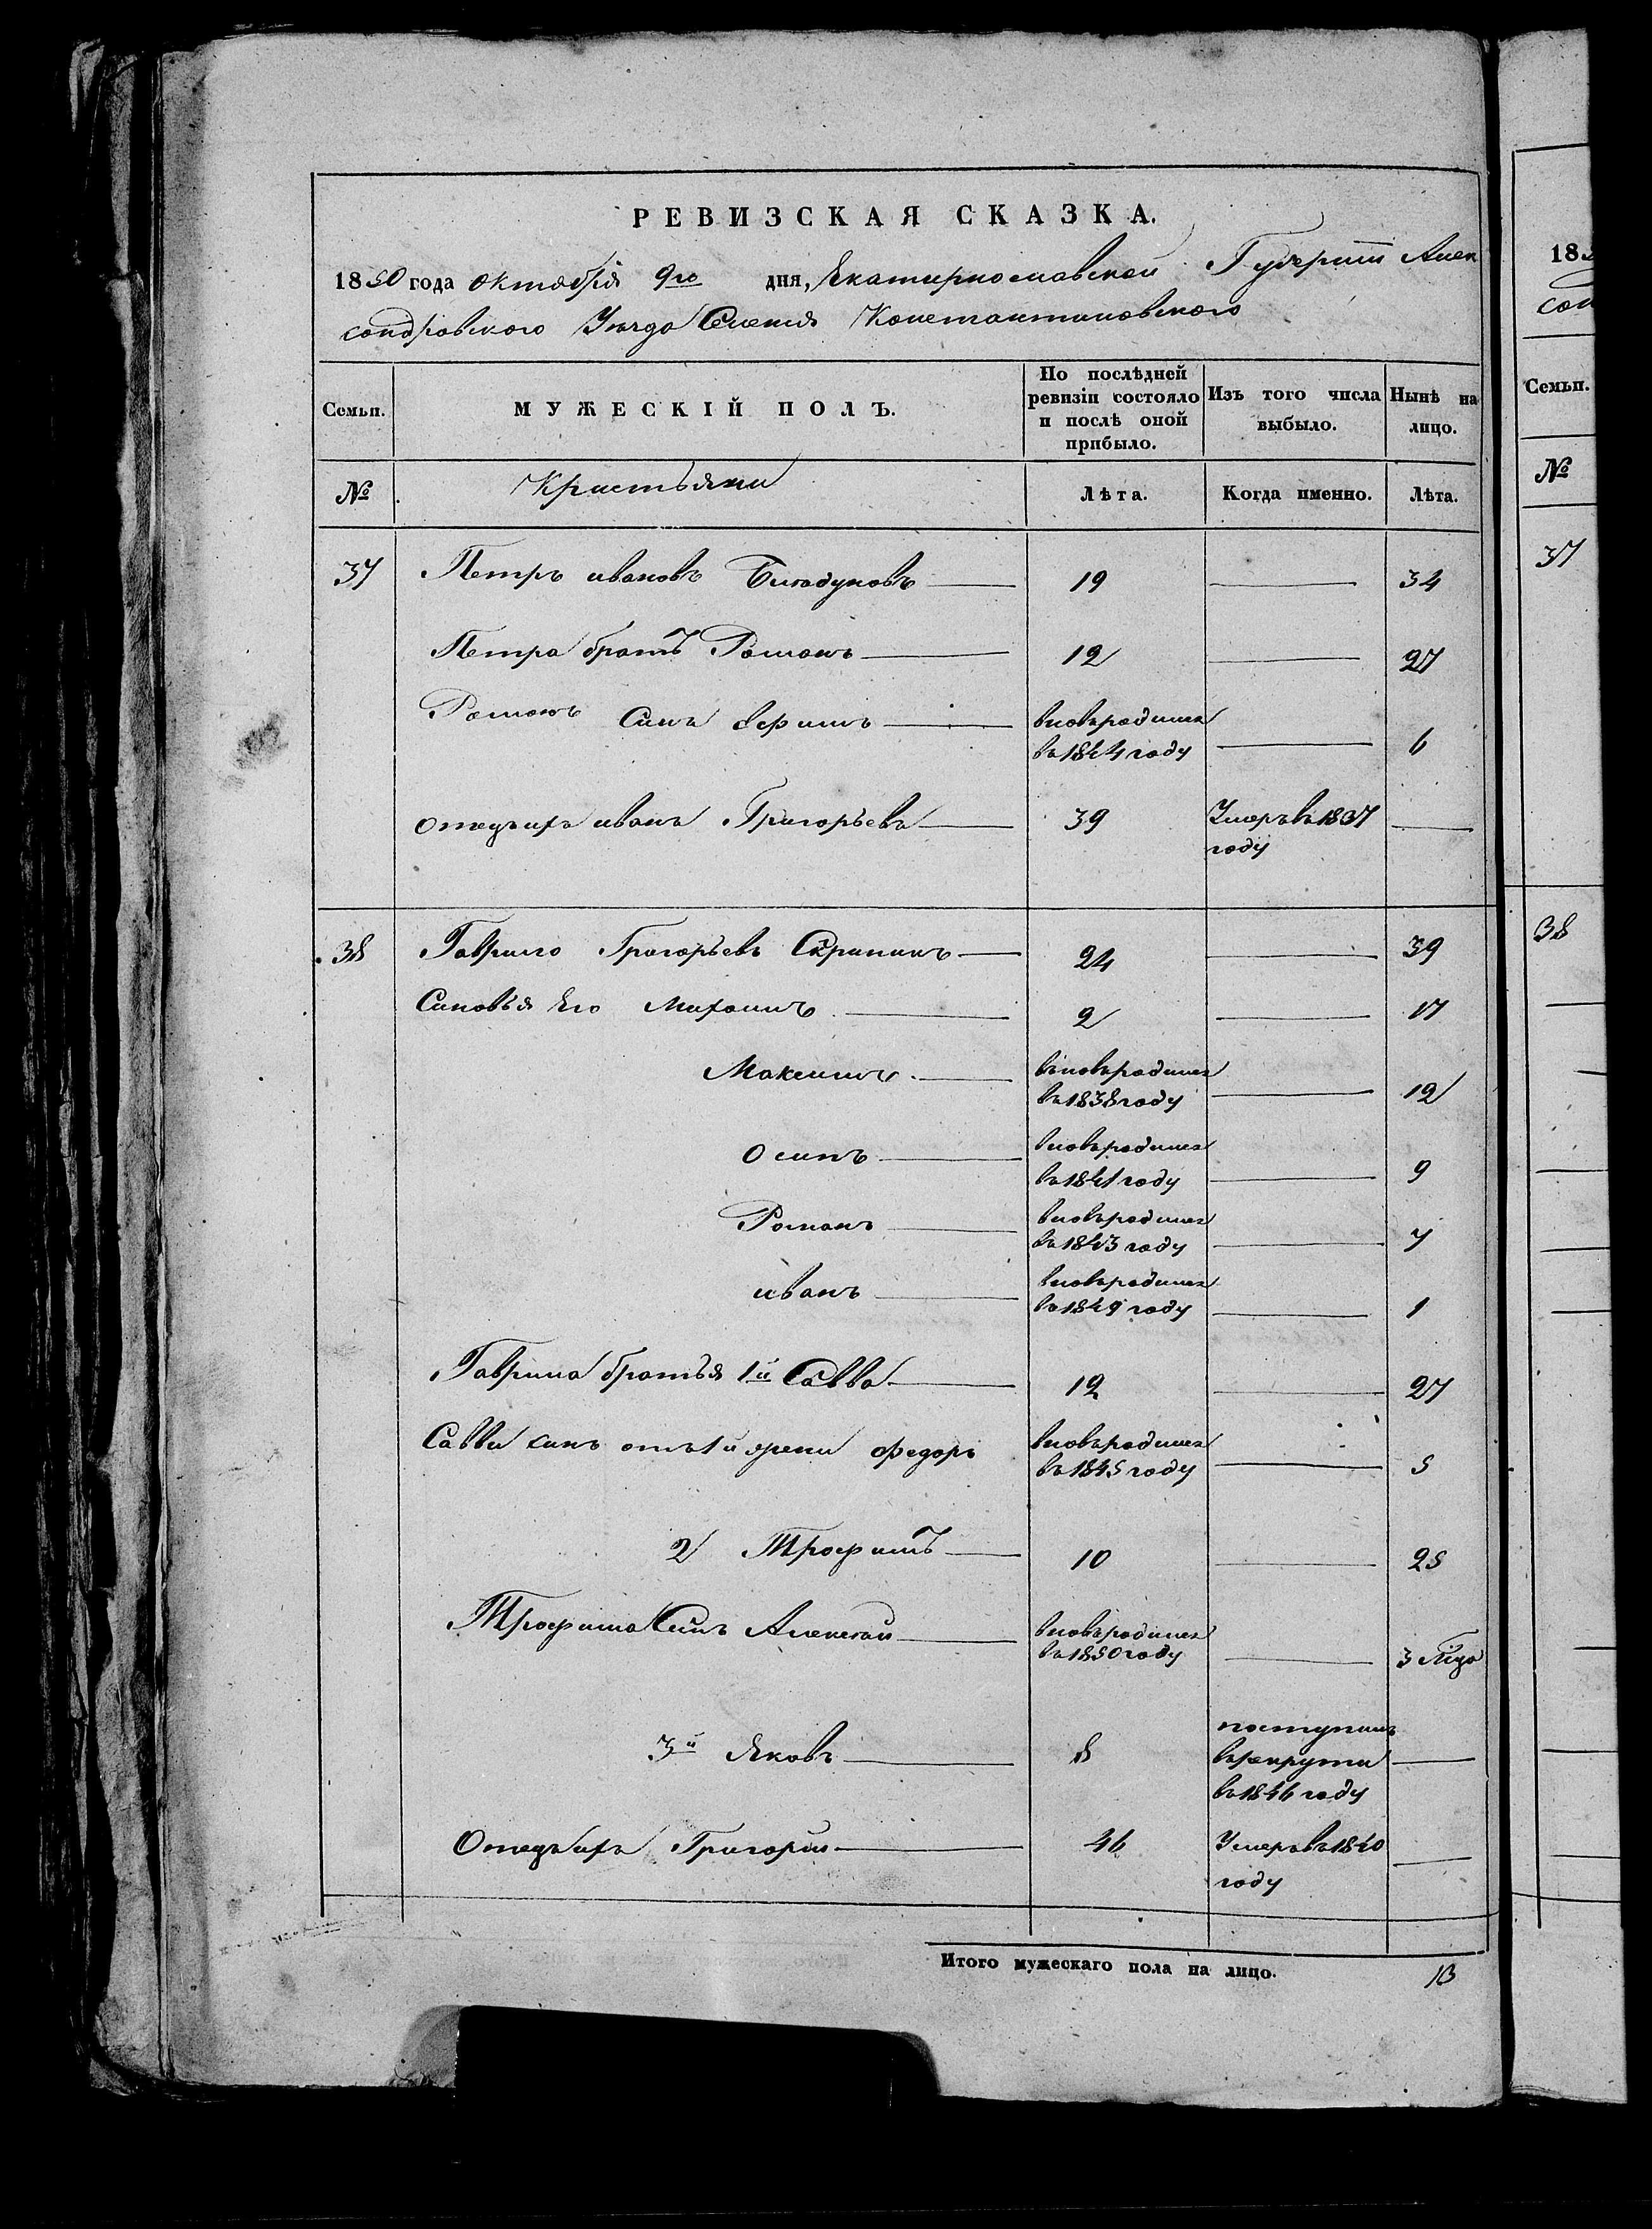 РЕВИЗСКАЯ СКАЗКА.
1850 года октября 9го дня, Екатеринославской Губернии Алек
сандровского Уезда Селения Константиновского
Семьи. МУЖЕСКІЙ ПОЛЪ. По послѣдней ревизіи состояло и послѣ оной прибыло. Изъ того числа выбыло. Нынѣ на лицо.
№ Кристьяни Лѣта. Когда именно. Лѣта.
37 Петръ ивановъ 19 34
Петра братъ Романъ 12 27
Романъ Синъ Ефимъ вновьродился 6
въ 1844 году
отецъ ихъ иванъ Григорьевъ 39 Умеръ въ 1837
году
38 Гаврило Григорьевъ Скрипникъ 24 39
Синовья Его Михаилъ 2 17
Максимъ вновьродился
въ 1838 году 12
Осипъ вновьродился
въ 1841 году 9
Романъ вновьродился
въ 1843 году 7
иванъ вновьродился
въ 1849 году 1
Гаврила братья 1й Савва 12 27
Савви синъ отъ 1й жени Федоръ вновьродился
въ 1845 году 5
2 Трофимъ 10 25
Трофима Синъ Алексей вновьродился
въ 1850 году 3
3й Яковъ 8 поступилъ
в рекрути
въ 1846 году
Отецъ ихъ Григорий 46 Умеръ въ 1840
году
Итого мужескаго пола на лицо. 13
18
Семьи.
№
37
38